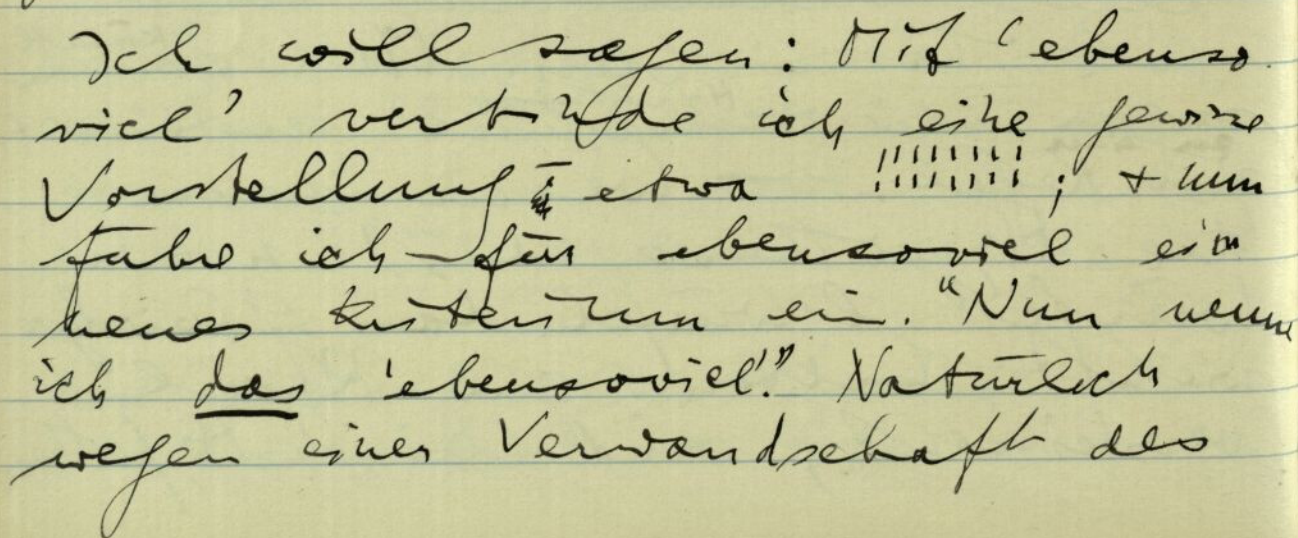 Ich will sagen: Mit ‘ebenso
viel’ verbinde ich eine gewisse
Vorstellung – etwa ; + nun
führe ich für ebensoviel ein
neues Kriterium ein. “Nun nenne
ich das ‘ebensoviel’.” Natürlich
wegen einer Verwandschaft des